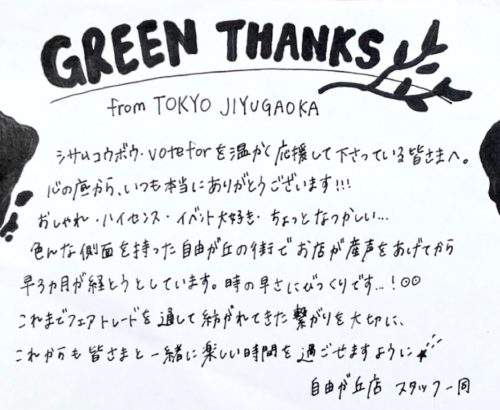 GREEN THANKS
from TOKYO JIYUGAOKA
シサムコウボウ・voteforを温かく応援して下さっている皆さまへ。
心の底から、いつも本当にありがとうございます!!!
おしゃれ・ハイセンス・イベント大好き・ちょっとなつかしい...
色んな側面を持った自由が丘の街でお店が産声をあげてから
早3ヵ月が経とうとしています。時の早さにびっくりです...!
これまでフェアトレードを通して紡がれてきた繋がりを大切に、
これからも皆さまと一緒に楽しい時間を過ごせますように
自由が丘店 スタッフ一同